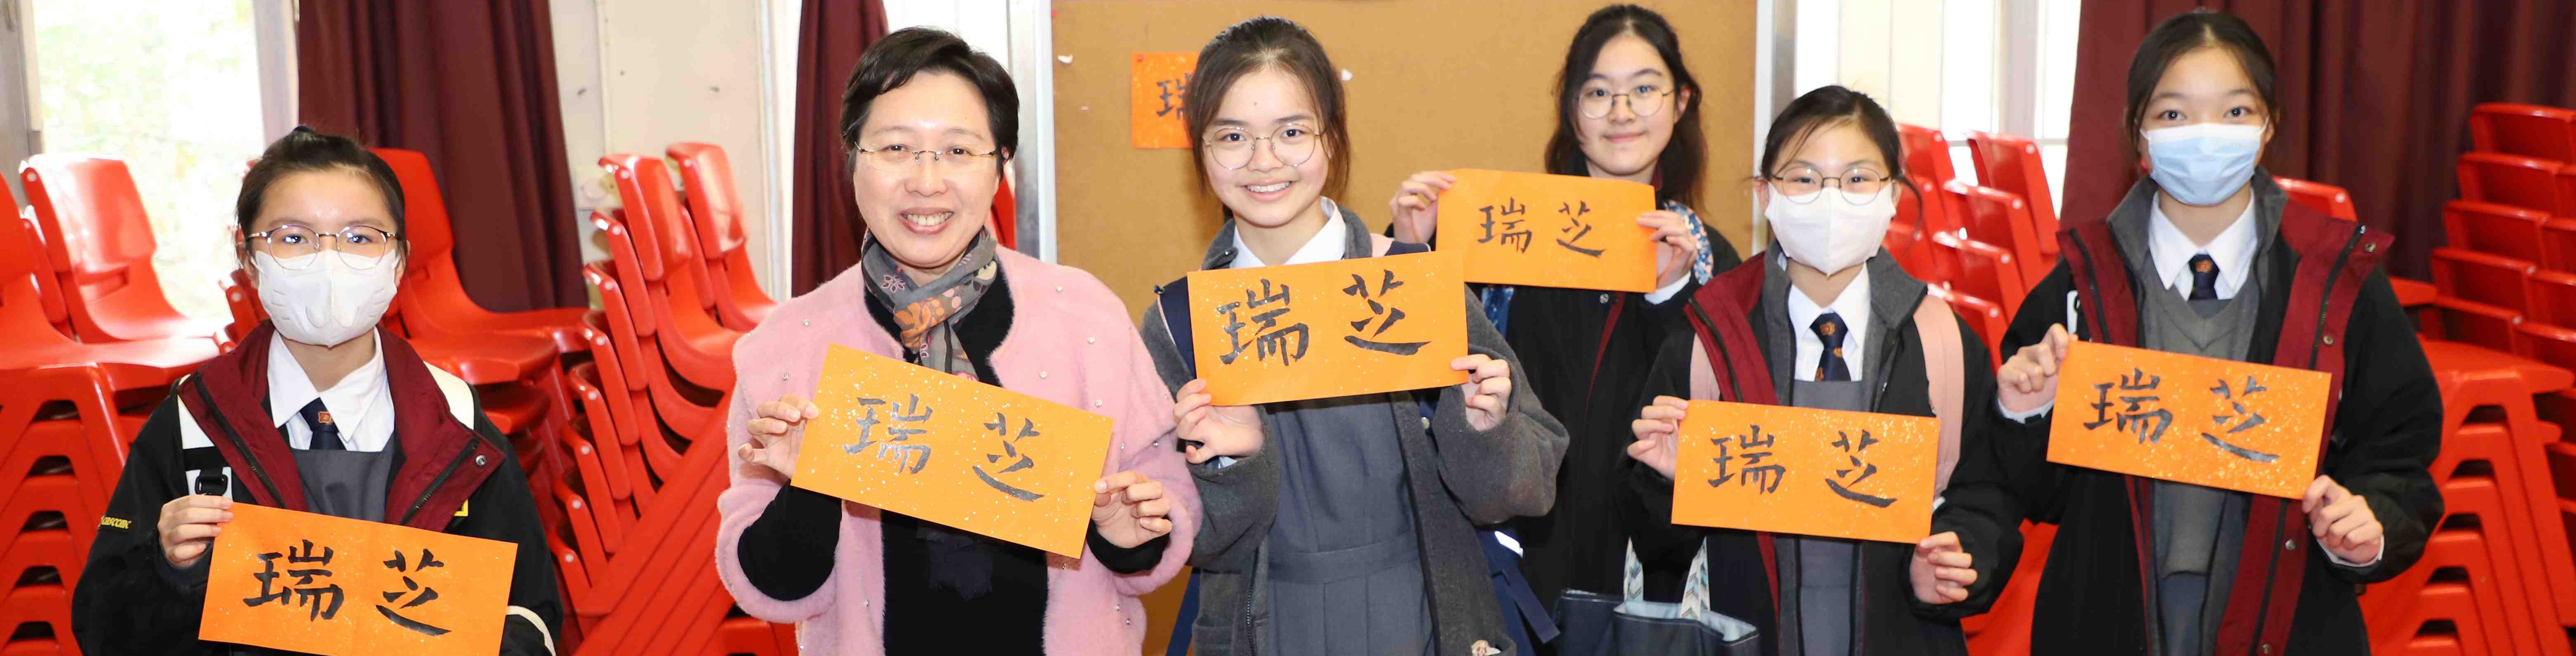 瑞
瑞芝
瑞芝
瑞芝
瑞芝
瑞芝
瑞芝